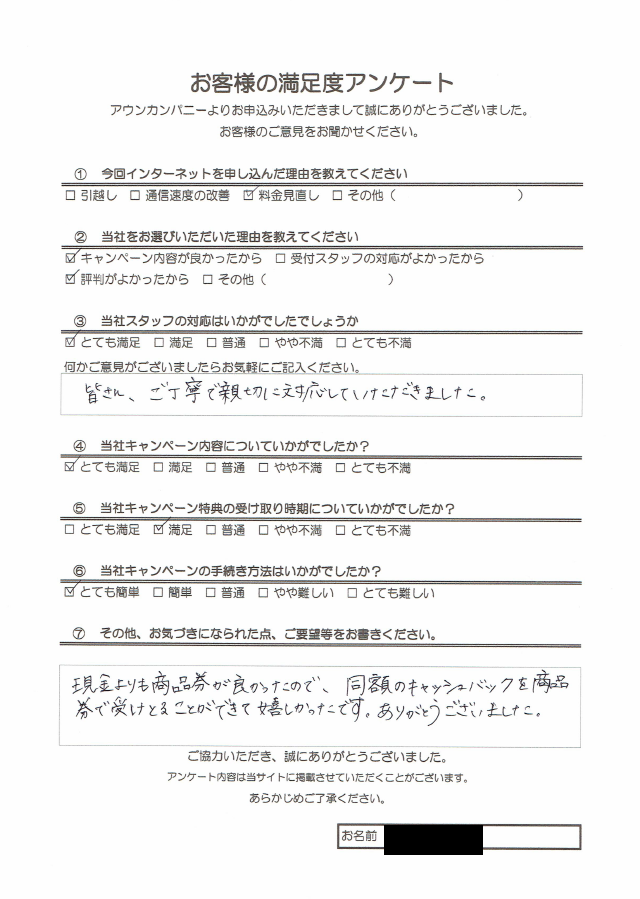 お客様の満足度アンケート
アウンカンパニーよりお申込みいただきまして誠にありがとうございました。
お客様のご意見をお聞かせください。
① 今回インターネットを申し込んだ理由を教えてください
☐ 引越し ☐ 通信速度の改善 ☑ 料金見直し ☐ その他（ ）
② 当社をお選びいただいた理由を教えてください
☑ キャンペーン内容が良かったから ☐ 受付スタッフの対応がよかったから
☑ 評判がよかったから ☐ その他（ ）
③ 当社スタッフの対応はいかがでしたでしょうか
☑ とても満足 ☐ 満足 ☐ 普通 ☐ やや不満 ☐ とても不満
何かご意見がございましたらお気軽にご記入ください。
皆さん、ご丁寧で親切に対応していただきました。
④ 当社キャンペーン内容についていかがでしたか？
☑ とても満足 ☐ 満足 ☐ 普通 ☐ やや不満 ☐ とても不満
⑤ 当社キャンペーン特典の受け取り時期についていかがでしたか？
☐ とても満足 ☑ 満足 ☐ 普通 ☐ やや不満 ☐ とても不満
⑥ 当社キャンペーンの手続き方法はいかがでしたか？
☑ とても簡単 ☐ 簡単 ☐ 普通 ☐ やや難しい ☐ とても難しい
⑦ その他、お気づきになられた点、ご要望等をお書きください。
現金よりも商品券が良かったので、同額のキャッシュバックを商品
券で受けとることができて嬉しかったです。ありがとうございました。
ご協力いただき、誠にありがとうございました。
アンケート内容は当サイトに掲載させていただくことがございます。
あらかじめご了承ください。
お名前